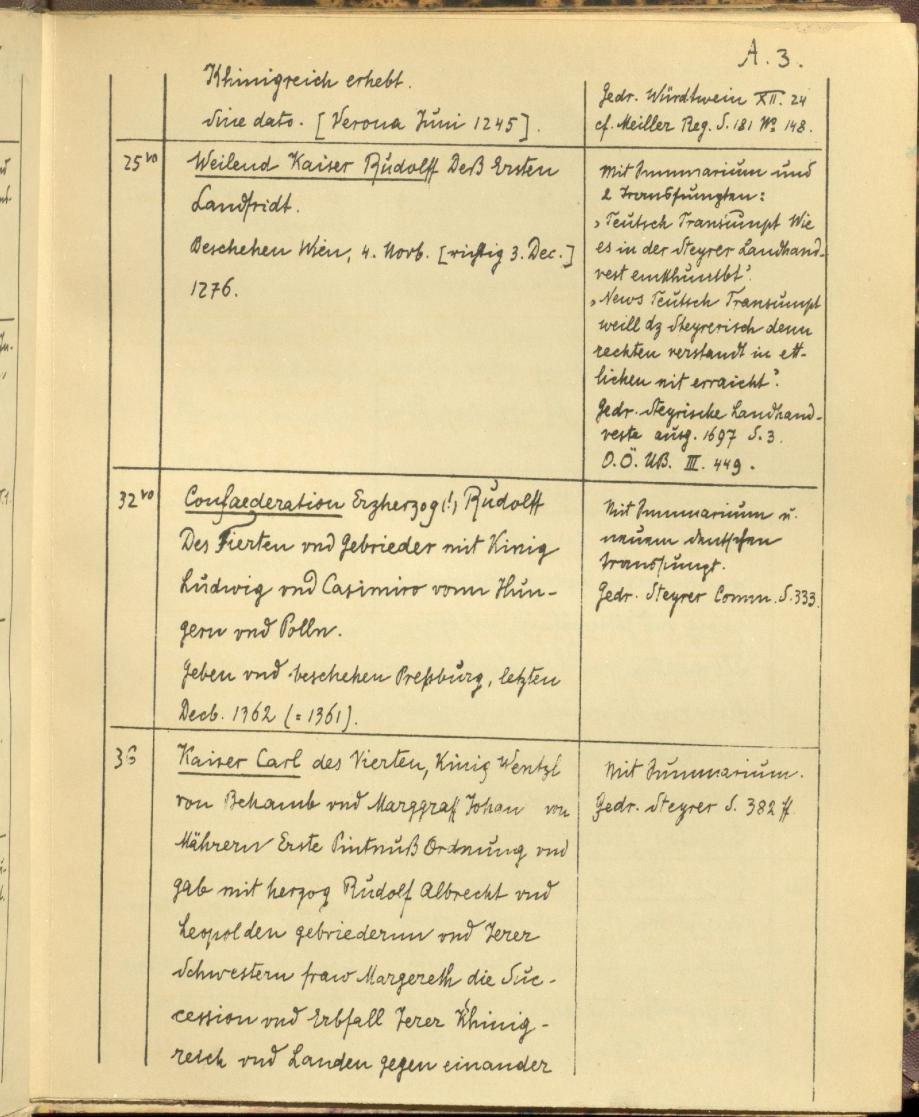 A. 3.
Khinigreich erhebt.
Sine dato. [Verona Juni 1245].
Gedr. Würdtwein XII. 24
cf. Meiller Reg. S. 181 No 148.
25vo
Weilend Kaiser Rudolff Deß Ersten
Landfridt.
Beschehen Wien, 4. Novb. [richtig 3. Dec.]
1276.
Mit Summarium und
2 Transsumpten:
„Teutsch Transumpt Wie
es in der Steyrer Landhand-
vest einkhumbt".
„News Teutsch Transumpt
weill dz Steyrerisch denn
rechten verstandt in ett-
lichen nit erraicht".
Gedr. Steyrische Landhand-
veste ausg. 1697 S. 3.
O.Ö. UB. III. 449.
32vo
Confaederation Erzherzog (!) Rudolff
Des Fierten vnd Gebrieder mit Kinig
Ludwig vnd Casimiro vonn Hun-
gern vnd Polln.
Geben vnd beschehen Preßburg, letzten
Decb. 1362 (= 1361).
Mit Summarium u.
neuem deutschen
Transsumpt.
Gedr. Steyrer Comm. S. 333.
36
Kaiser Carl des Vierten, Kinig Wentzl
von Behaimb vnd Marggraff Johan von
Mährern Erste Pintnuß Ordnung vnd
gab mit herzog Rudolf Albrecht vnd
Leopolden gebriedernn vnd Jerer
Schwestern fraw Margereth die Suc-
cession vnd Erbfall Jerer Khinig-
reich vnd Landen gegen einander
Mit Summarium.
Gedr. Steyrer S. 382 ff.